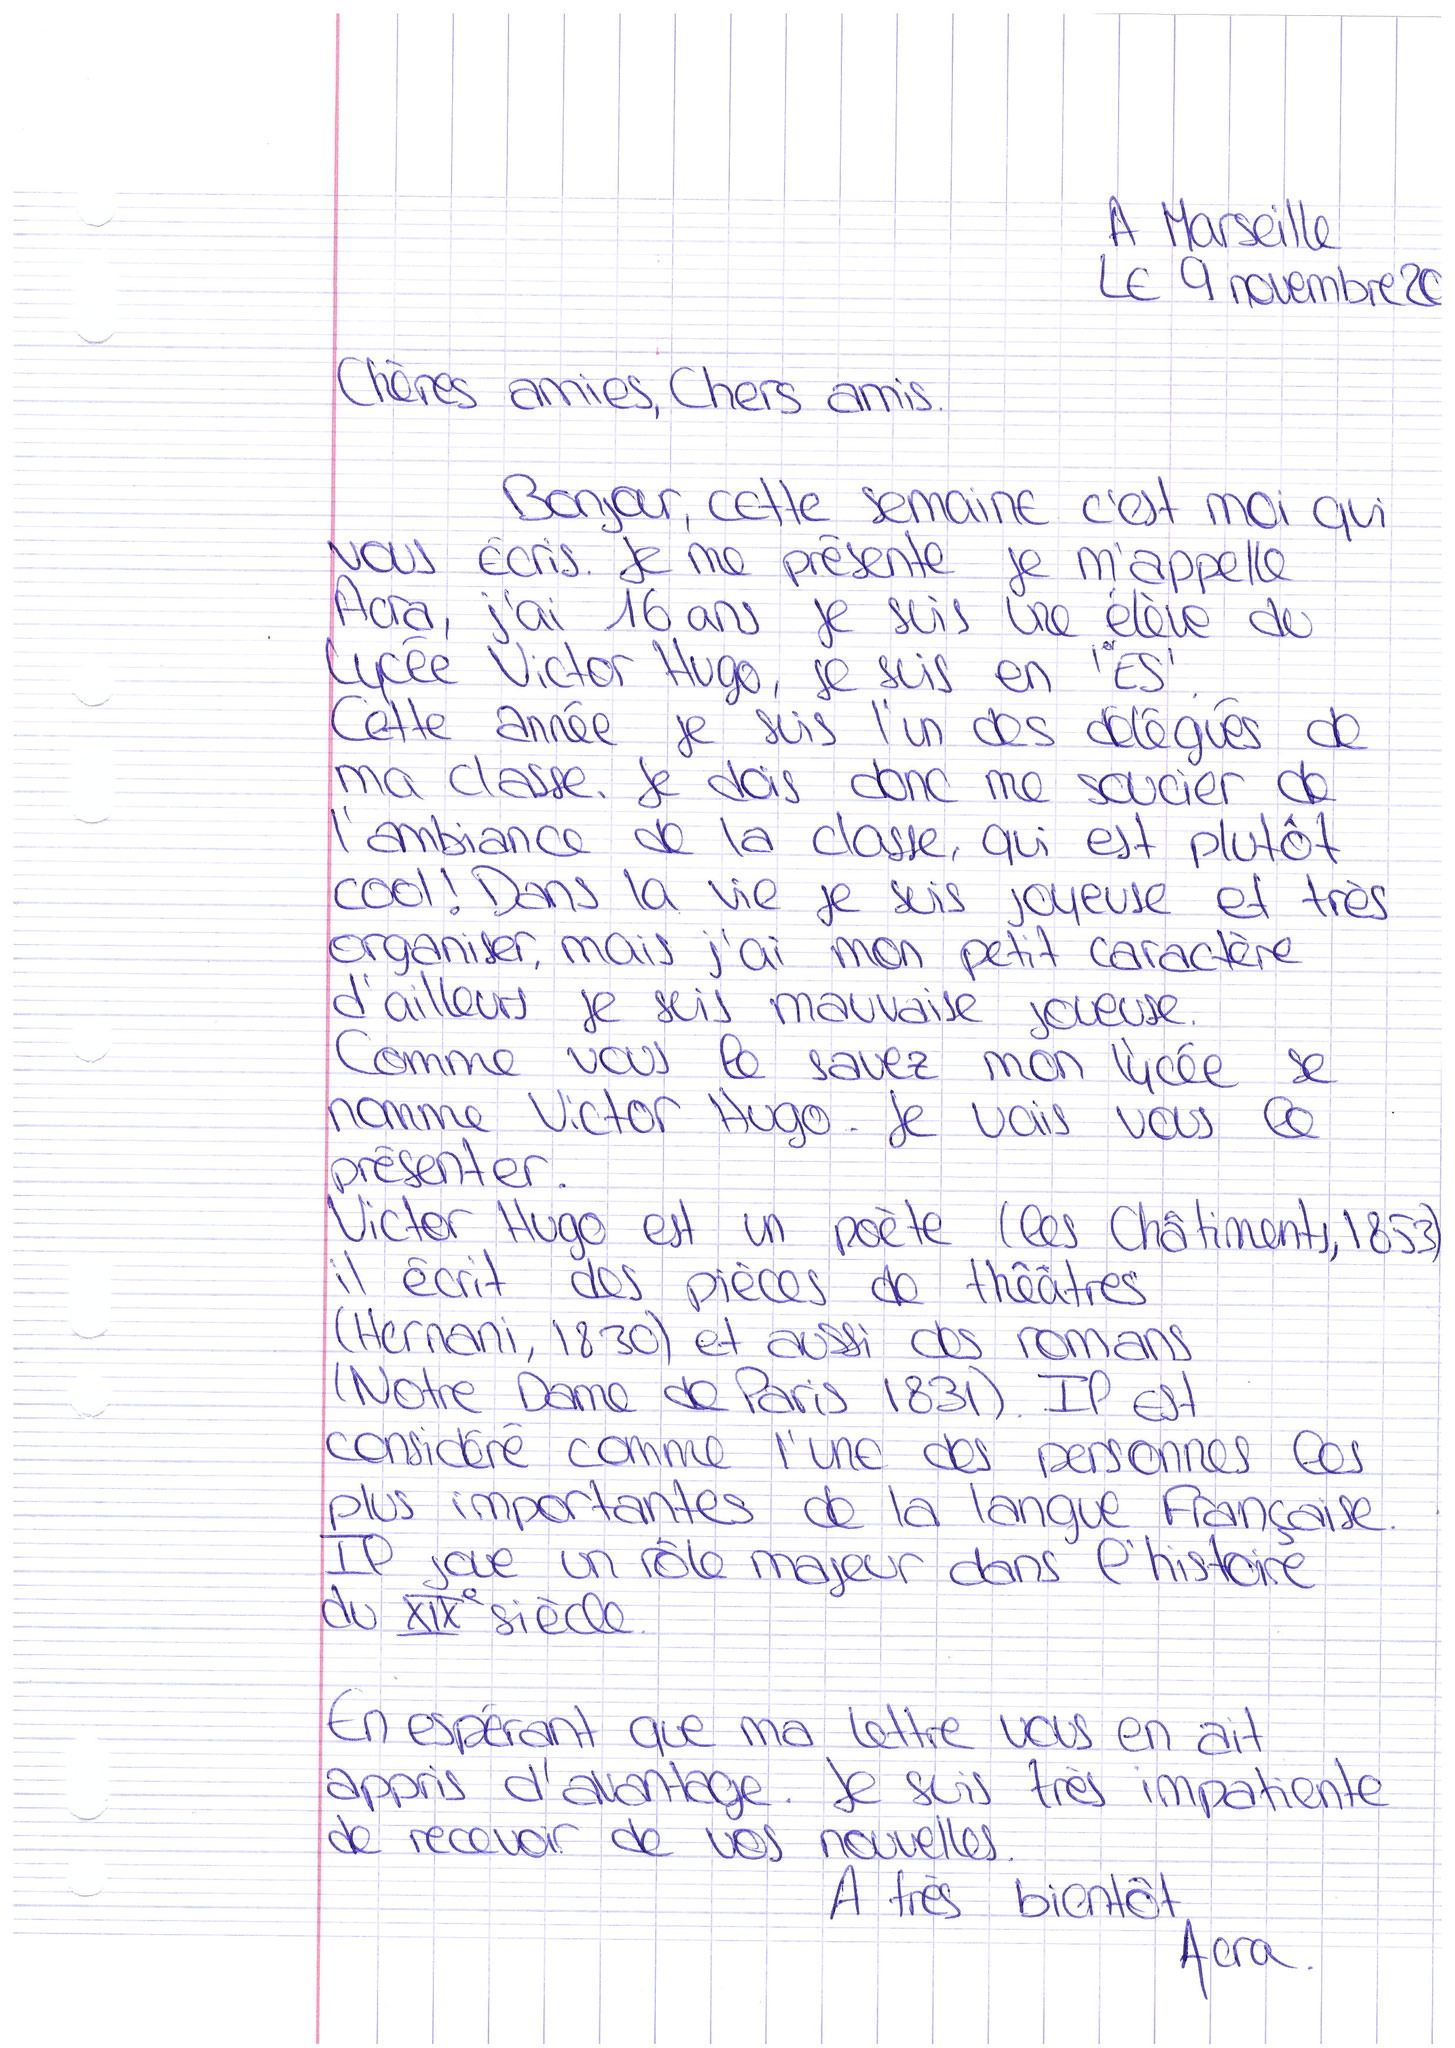 A Marseille
Le 9 novembre 20
Chères amies, Chers amis.
Bonjour, cette semaine c'est moi qui
vous écris. Je me présente je m'appelle
Acra, j'ai 16 ans je suis une élève de
Lycée Victor Hugo, je suis en 1ère ES'.
Cette année je suis l'un des délégués de
ma classe. Je dois donc me soucier de
l'ambiance de la classe, qui est plutôt
cool! Dans la vie je suis joyeuse et très
organiser, mais j'ai mon petit caractère
d'ailleurs je suis mauvaise joueuse.
Comme vous le savez mon lycée se
nomme Victor Hugo. Je vais vous le
présenter.
Victor Hugo est un poète (les Châtiments, 1853)
il écrit des pièces de théâtres
(Hernani, 1830) et aussi des romans
(Notre Dame de Paris 1831). Il est
considéré comme l'une des personnes les
plus importantes de la langue Française.
Il joue un rôle majeur dans l'histoire
du XIXe siècle.
En espérant que ma lettre vous en ait
appris d'avantage. Je suis très impatiente
de recevoir de vos nouvelles.
A très bientôt
Acra.